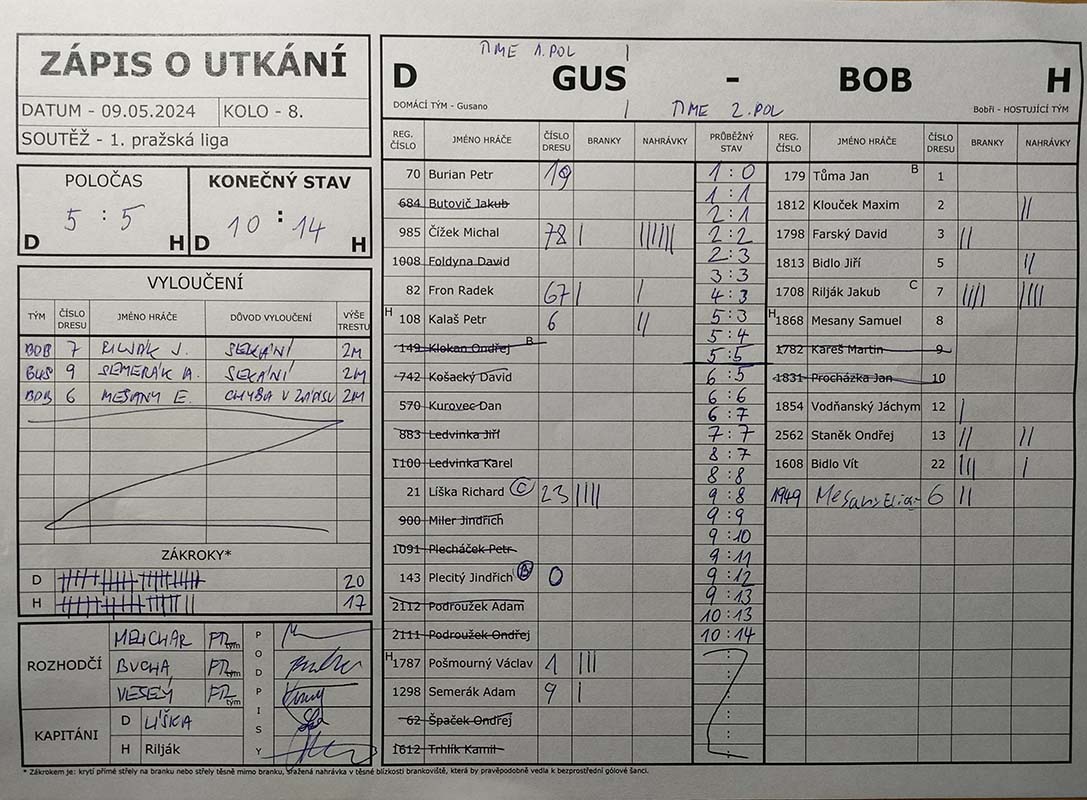 ZÁPIS O UTKÁNÍ
DATUM - 09.05.2024 KOLO - 8.
SOUTĚŽ - 1. pražská liga
POLOČAS KONEČNÝ STAV
5 : 5 10 : 14
D H D H
VYLOUČENÍ
TÝM ČÍSLO DRESU JMÉNO HRÁČE DŮVOD VYLOUČENÍ VÝŠE TRESTU
BOB 7 RILJÁK J. SEKÁNÍ 2M
GUS 9 SEMERÁK A. SEKÁNÍ 2M
BOB 6 MESANY E. CHYBA V ZÁPISU 2M
ZÁKROKY*
D 20
H 17
ROZHODČÍ
MELICHAR
BUCHA
VESELÝ
PODPISY
KAPITÁNI
D LÍŠKA
H Rilják
TIME 1.POL |
D GUS - BOB H
DOMÁCÍ TÝM - Gusano | TIME 2.POL Bobři - HOSTUJÍCÍ TÝM
REG. ČÍSLO JMÉNO HRÁČE ČÍSLO DRESU BRANKY NAHRÁVKY PRŮBĚŽNÝ STAV REG. ČÍSLO JMÉNO HRÁČE ČÍSLO DRESU BRANKY NAHRÁVKY
70 Burian Petr 19
684 Butovič Jakub
985 Čížek Michal 78 | ||||||
1008 Foldyna David
82 Fron Radek 67 | |
H 108 Kalaš Petr 6 ||
149 Klokan Ondřej B
742 Košacký David
570 Kurovec Dan
883 Ledvinka Jiří
1100 Ledvinka Karel
21 Líška Richard C 23 ||||
900 Miler Jindřich
1091 Plecháček Petr
143 Plecitý Jindřich B 0
2112 Podroužek Adam
2111 Podroužek Ondřej
H 1787 Pošmourný Václav 1 |||
1298 Semerák Adam 9 |
62 Špaček Ondřej
1612 Trhlík Kamil
1 : 0
1 : 1
2 : 1
2 : 2
2 : 3
3 : 3
4 : 3
5 : 3
5 : 4
5 : 5
6 : 5
6 : 6
6 : 7
7 : 7
8 : 7
8 : 8
9 : 8
9 : 9
9 : 10
9 : 11
9 : 12
9 : 13
10 : 13
10 : 14
179 Tůma Jan B 1
1812 Klouček Maxim 2 ||
1798 Farský David 3 ||
1813 Bidlo Jiří 5 ||
1708 Rilják Jakub C 7 |||| ||||
H 1868 Mesany Samuel 8
1782 Kareš Martin 9
1831 Procházka Jan 10
1854 Vodňanský Jáchym 12 |
2562 Staněk Ondřej 13 || ||
1608 Bidlo Vít 22 ||| |
1949 Mesany Elias 6 ||
* Zákrokem je: krytí přímé střely na branku nebo střely těsně mimo branku, sražená nahrávka v těsné blízkosti brankoviště, která by pravěpodobně vedla k bezprostřední gólové šanci.